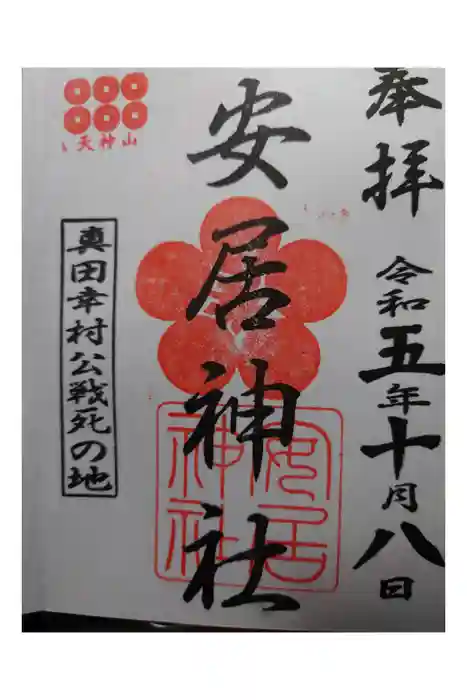 奉拝
令和五年十月八日
安居神社
安居神社
天神山
真田幸村公戦死の地